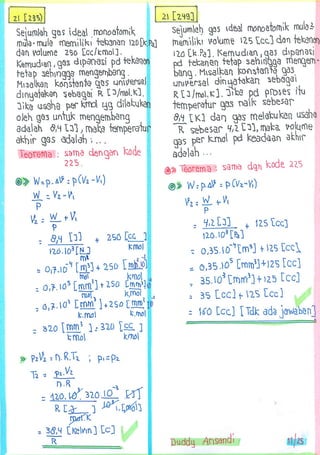 21 [235]
Sejumlah gas ideal monoatomik
mula-mula memiliki tekanan 120 [kPa]
dan volume 250 [cc/kmol].
Kemudian, gas dipanasi pd tekanan
tetap sehingga mengembang.
Misalkan konstanta gas universal
dinyatakan sebagai R [J/mol.K].
Jika usaha per kmol yg dilakukan
oleh gas untuk mengembang
adalah 8,4 [J], maka temperatur
akhir gas adalah : ...
Teorema : sama dengan kode
225.
W = p.ΔV = p (V₂ - V₁)
W/P = V₂ - V₁
V₂ = W/P + V₁
= 8,4 [J] / 120.10³ [N/m²] + 250 [cc/kmol]
= 0,7.10⁻⁴ [m³/kmol] + 250 [cc/kmol]
= 0,7.10⁵ [mm³/kmol] + 250 [mm³/kmol]
= 320 [mm³/kmol] = 320 [cc/kmol]
P₂V₂ = n.R.T₂ ; P₁ = P₂
T₂ = P₂.V₂ / n.R
= 38,4/R [Kelvin] [C]
21 [249]
Sejumlah gas ideal monoatomik mula²
memiliki volume 125 [cc] dan tekanan
120 [k.Pa]. Kemudian, gas dipanasi
pd tekanan tetap sehingga mengem-
bang. Misalkan konstanta gas
universal dinyatakan sebagai
R [J/mol.K]. Jika pd proses itu
temperatur gas naik sebesar
8,4 [K] dan gas melakukan usaha
R sebesar 4,2 [J], maka volume
gas per kmol pd keadaan akhir
adalah ...
Teorema : sama dgn kode 225
W = p.ΔV = p (V₂ - V₁)
V₂ = W/P + V₁
= 4,2 [J] / 120.10³ [Pa] + 125 [cc]
= 0,35.10⁻⁴ [m³] + 125 [cc]
= 0,35.10⁵ [mm³] + 125 [cc]
= 35.10³ [mm³] + 125 [cc]
= 35 [cc] + 125 [cc]
= 160 [cc] [Tdk ada jawaban]
Buddy Ansondi 11/25